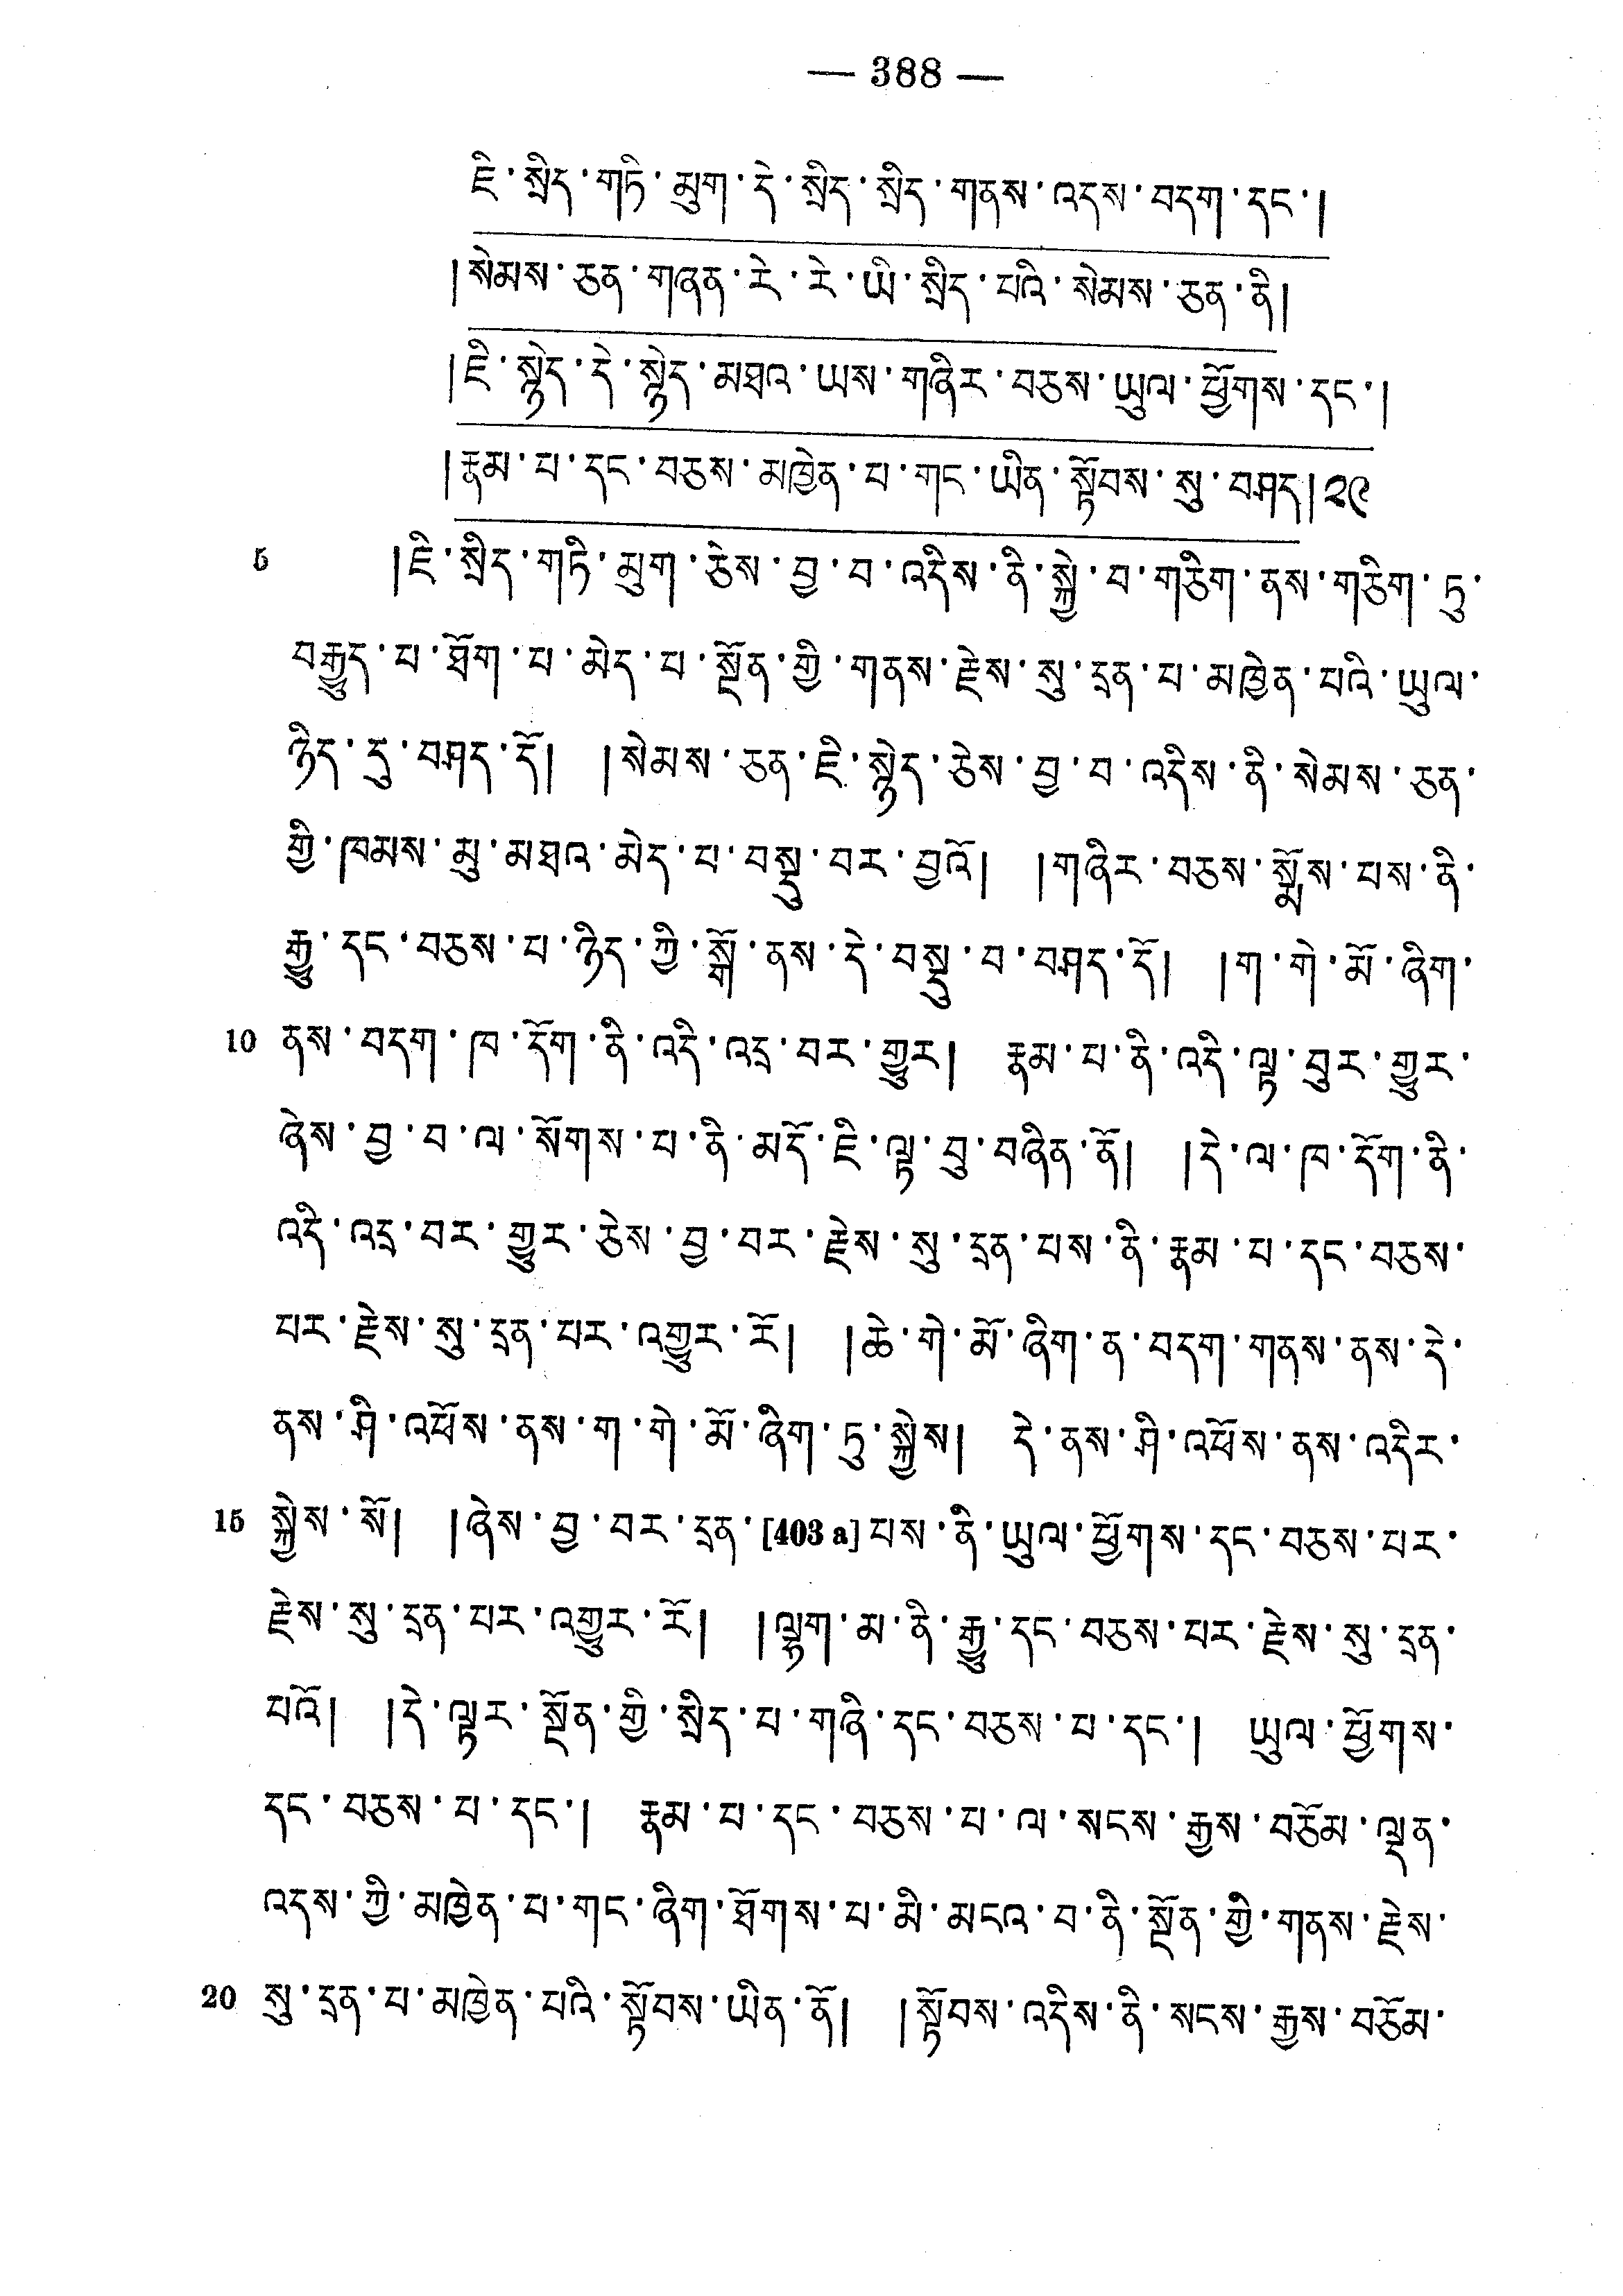 — 388 —
ཇི་སྲིད་གཏི་མུག་དེ་སྲིད་སྲིད་གནས་འདས་བདག་དང་།
།སེམས་ཅན་གཞན་རེ་རེ་ཡི་སྲིད་པའི་སེམས་ཅན་ནི།
།ཇི་སྙེད་དེ་སྙེད་མཐའ་ཡས་གཞིར་བཅས་ཡུལ་ཕྱོགས་དང་།
།རྣམ་པ་དང་བཅས་མཁྱེན་པ་གང་ཡིན་སྟོབས་སུ་བཤད།༢༩
5 །ཇི་སྲིད་གཏི་མུག་ཅེས་བྱ་བ་འདིས་ནི་སྐྱེ་བ་གཅིག་ནས་གཅིག་ཏུ་
བརྒྱུད་པ་ཐོག་པ་མེད་པ་སྔོན་གྱི་གནས་རྗེས་སུ་དྲན་པ་མཁྱེན་པའི་ཡུལ་
ཉིད་དུ་བཤད་དོ། །སེམས་ཅན་ཇི་སྙེད་ཅེས་བྱ་བ་འདིས་ནི་སེམས་ཅན་
གྱི་ཁམས་མུ་མཐའ་མེད་པ་བསྡུ་བར་བྱའོ། །གཞིར་བཅས་སྨོས་པས་ནི་
རྒྱུ་དང་བཅས་པ་ཉིད་ཀྱི་སྒོ་ནས་དེ་བསྡུ་བ་བཤད་དོ། །ག་གེ་མོ་ཞིག་
10 ནས་བདག་ཁ་དོག་ནི་འདི་འདྲ་བར་གྱུར། རྣམ་པ་ནི་འདི་ལྟ་བུར་གྱུར་
ཞེས་བྱ་བ་ལ་སོགས་པ་ནི་མདོ་ཇི་ལྟ་བུ་བཞིན་ནོ། །དེ་ལ་ཁ་དོག་ནི་
འདི་འདྲ་བར་གྱུར་ཅེས་བྱ་བར་རྗེས་སུ་དྲན་པས་ནི་རྣམ་པ་དང་བཅས་
པར་རྗེས་སུ་དྲན་པར་འགྱུར་རོ། །ཆེ་གེ་མོ་ཞིག་ན་བདག་གནས་ནས་དེ་
ནས་ཤི་འཕོས་ནས་ག་གེ་མོ་ཞིག་ཏུ་སྐྱེས། དེ་ནས་ཤི་འཕོས་ནས་འདིར་
15 སྐྱེས་སོ། །ཞེས་བྱ་བར་དྲན་[403 a]པས་ནི་ཡུལ་ཕྱོགས་དང་བཅས་པར་
རྗེས་སུ་དྲན་པར་འགྱུར་རོ། །ལྷག་མ་ནི་རྒྱུ་དང་བཅས་པར་རྗེས་སུ་དྲན་
པའོ། །དེ་ལྟར་སྔོན་གྱི་སྲིད་པ་གཞི་དང་བཅས་པ་དང་། ཡུལ་ཕྱོགས་
དང་བཅས་པ་དང་། རྣམ་པ་དང་བཅས་པ་ལ་སངས་རྒྱས་བཅོམ་ལྡན་
འདས་ཀྱི་མཁྱེན་པ་གང་ཞིག་ཐོགས་པ་མི་མངའ་བ་ནི་སྔོན་གྱི་གནས་རྗེས་
20 སུ་དྲན་པ་མཁྱེན་པའི་སྟོབས་ཡིན་ནོ། །སྟོབས་འདིས་ནི་སངས་རྒྱས་བཅོམ་